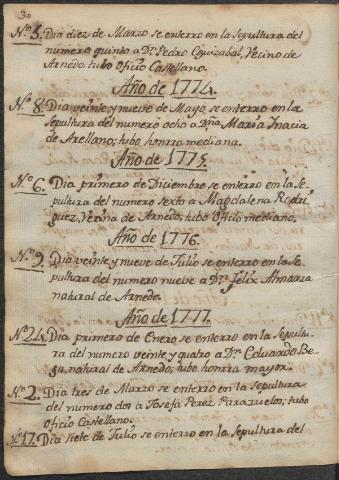 30
Nº 5. Dia diez de Marzo se enterro en la sepultura del
numero quinto a Dn. Pedro Eguizabal, Vecino de
Arnedo tubo Oficio Castellano.
Año de 1774.
Nº 8. Dia veinte y nueve de Mayo se enterro en la
sepultura del numero ocho a Dña. Maria Inacia
de Arellano; tubo honrra mediana.
Año de 1775.
Nº 6. Dia primero de Diciembre se enterro en la se-
pultura del numero sexto a Magdalena Rodri-
guez, Vecina de Arnedo; tubo Oficio mediano.
Año de 1776.
Nº 9. Dia veinte y nueve de Julio se enterro en la se-
pultura del numero nueve a Dn. Felix Almarza
natural de Arnedo.
Año de 1777.
Nº 24. Dia primero de Enero se enterro en la sepultu-
ra del numero veinte y quatro a Dn. Eduardo Be-
ga, natural de Arnedo; tubo honrra mayor.
Nº 2. Dia tres de Marzo se enterró en la sepultura
del numero dos a Josefa Perez Parazuelos; tubo
oficio Castellano.
Nº 17. Dia siete de Julio se enterro en la sepultura del